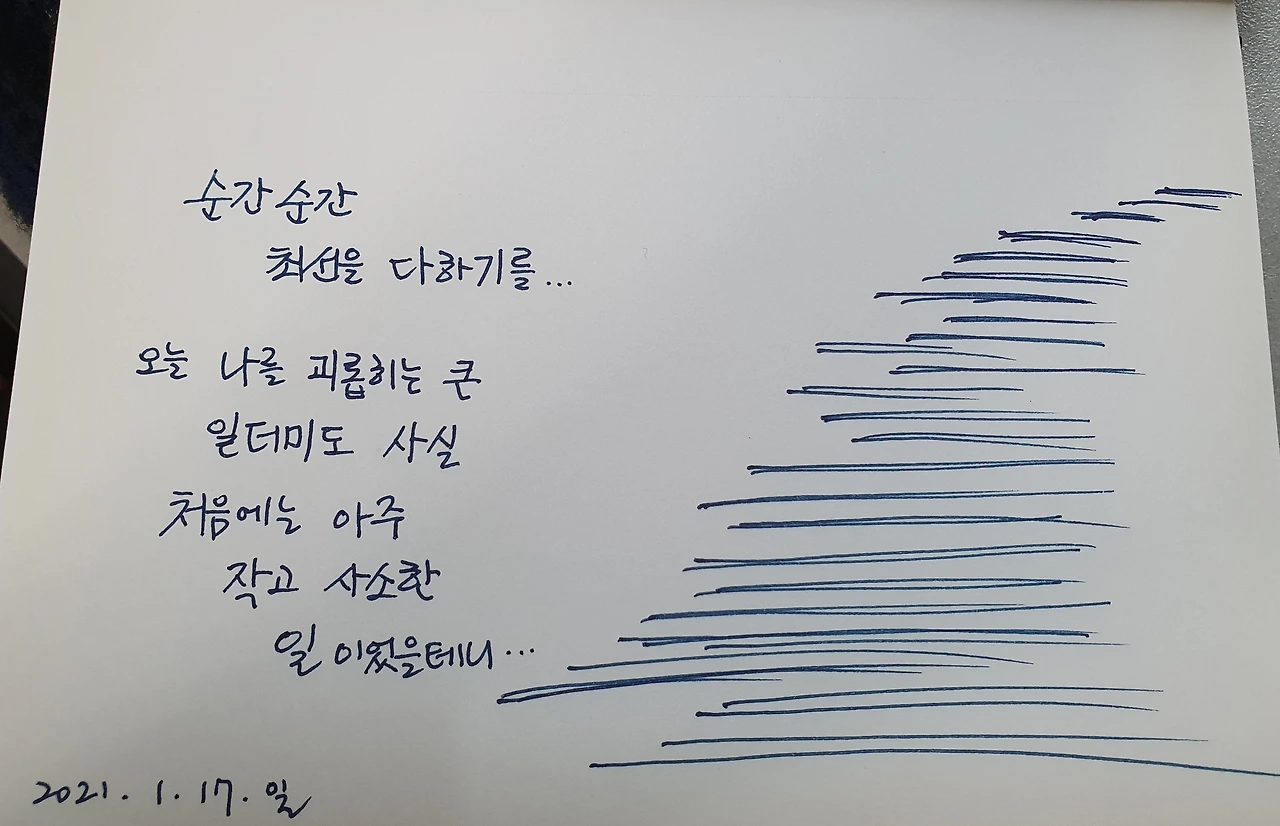 순간순간
최선을 다하기를...
오늘 나를 괴롭히는 큰
일더미도 사실
처음에는 아주
작고 사소한
일이었을테니...
2021. 1. 17. 일